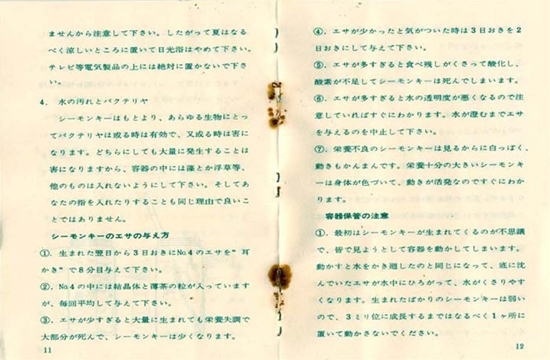 ませんから注意して下さい。したがって夏はなる
べく涼しいところに置いて日光浴はやめて下さい。
テレビ等電気製品の上には絶対に置かないで下さ
い。
4. 水の汚れとバクテリヤ
シーモンキーはもとより、あらゆる生物にとっ
てバクテリヤは或る時は有効で、又或る時は害に
なります。どちらにしても大量に発生することは
害になりますから、容器の中には藻とか浮草等、
他のものは入れないようにして下さい。そしてあ
なたの指を入れたりすることも同じ理由で良いこ
とではありません。
シーモンキーのエサの与え方
①．生まれた翌日から3日おきにNo.4のエサを“耳
かき”で8分目与えて下さい。
②．No.4の中には結晶体と薄茶の粒が入っています
が、毎回平均して与えて下さい。
③．エサが少なすぎると大量に生まれても栄養失調で
大部分が死んで、シーモンキーは少くなります。
11
④．エサが少かったと気がついた時は3日おきを2
日おきにして与えて下さい。
⑤．エサが多すぎると食べ残しがくさって酸化し、
酸素が不足してシーモンキーは死んでしまいます。
⑥．エサが多すぎると水の透明度が悪くなるので注
意していればすぐにわかります。水が澄むまでエサ
を与えるのを中止して下さい。
⑦．栄養不良のシーモンキーは見るからに白っぽく、
動きもかんまんです。栄養十分の大きいシーモンキ
ーは身体が色づいて、動きが活発なのですぐにわか
ります。
容器保管の注意
①．最初はシーモンキーが生まれてくるのが不思議
で、皆で見ようとして容器を動かしてしまいます。
動かすと水をかき廻したのと同じになって、底に沈
んでいたエサが水中にひろがって、水がくさりやす
くなります。生まれたばかりのシーモンキーは弱い
ので、3ミリ位に成長するまではなるべく1ヶ所に
置いて動かさないでください。
12